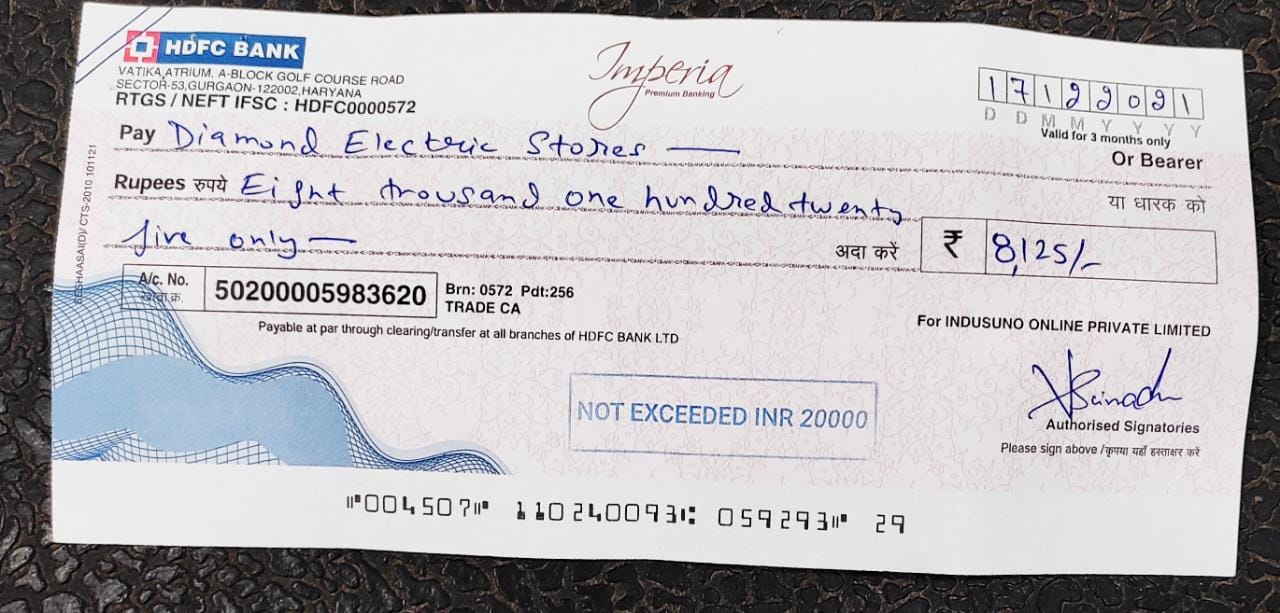 HDFC BANK
VATIKA ATRIUM, A-BLOCK GOLF COURSE ROAD
SECTOR-53,GURGAON-122002,HARYANA
RTGS / NEFT IFSC : HDFC0000572
Imperia
Premium Banking
17122021
D D M M Y Y Y Y
Valid for 3 months only
Pay Diamond Electric Stores —
Or Bearer
Rupees रुपये Eight trousand one hundred twenty
या धारक को
five only —
अदा करें ₹ 8,125/-
A/c. No. 50200005983620
खाता क्र.
Brn: 0572 Pdt:256
TRADE CA
Payable at par through clearing/transfer at all branches of HDFC BANK LTD
For INDUSUNO ONLINE PRIVATE LIMITED
NOT EXCEEDED INR 20000
Authorised Signatories
Please sign above /कृपया यहाँ हस्ताक्षर करें
⑈004507⑈ 110240093⑆ 059293⑈ 29
CTS-2010 101121